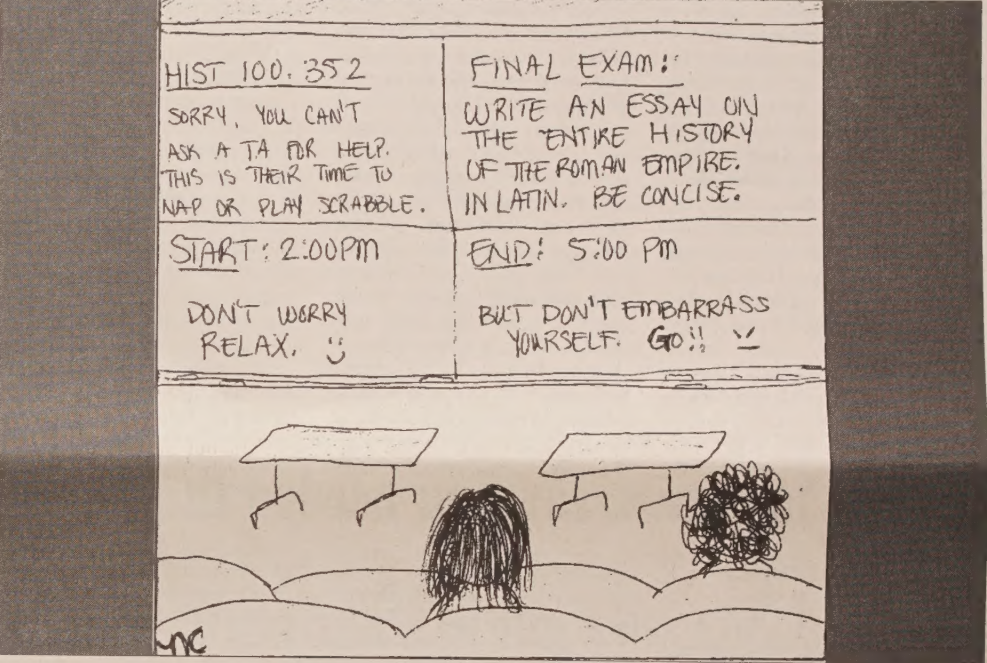 HIST 100.352
SORRY, YOU CAN'T
ASK A TA FOR HELP.
THIS IS THEIR TIME TO
NAP OR PLAY SCRABBLE.
FINAL EXAM:
WRITE AN ESSAY ON
THE ENTIRE HISTORY
OF THE ROMAN EMPIRE.
IN LATIN. BE CONCISE.
START: 2:00PM
DON'T WORRY
RELAX. :)
END: 5:00 PM
BUT DON'T EMBARRASS
YOURSELF. GO!!